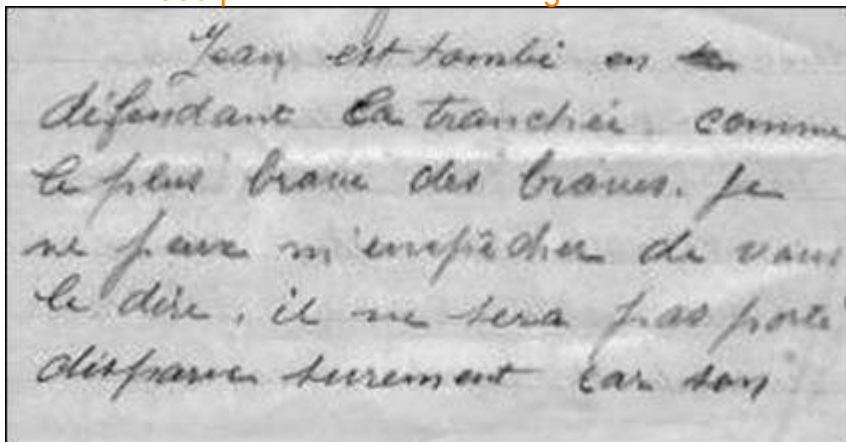 Jean est tombé en
défendant la tranchée comme
le plus brave des braves. Je
ne peux m'empêcher de vous
le dire, il ne sera pas porté
disparu surement car son